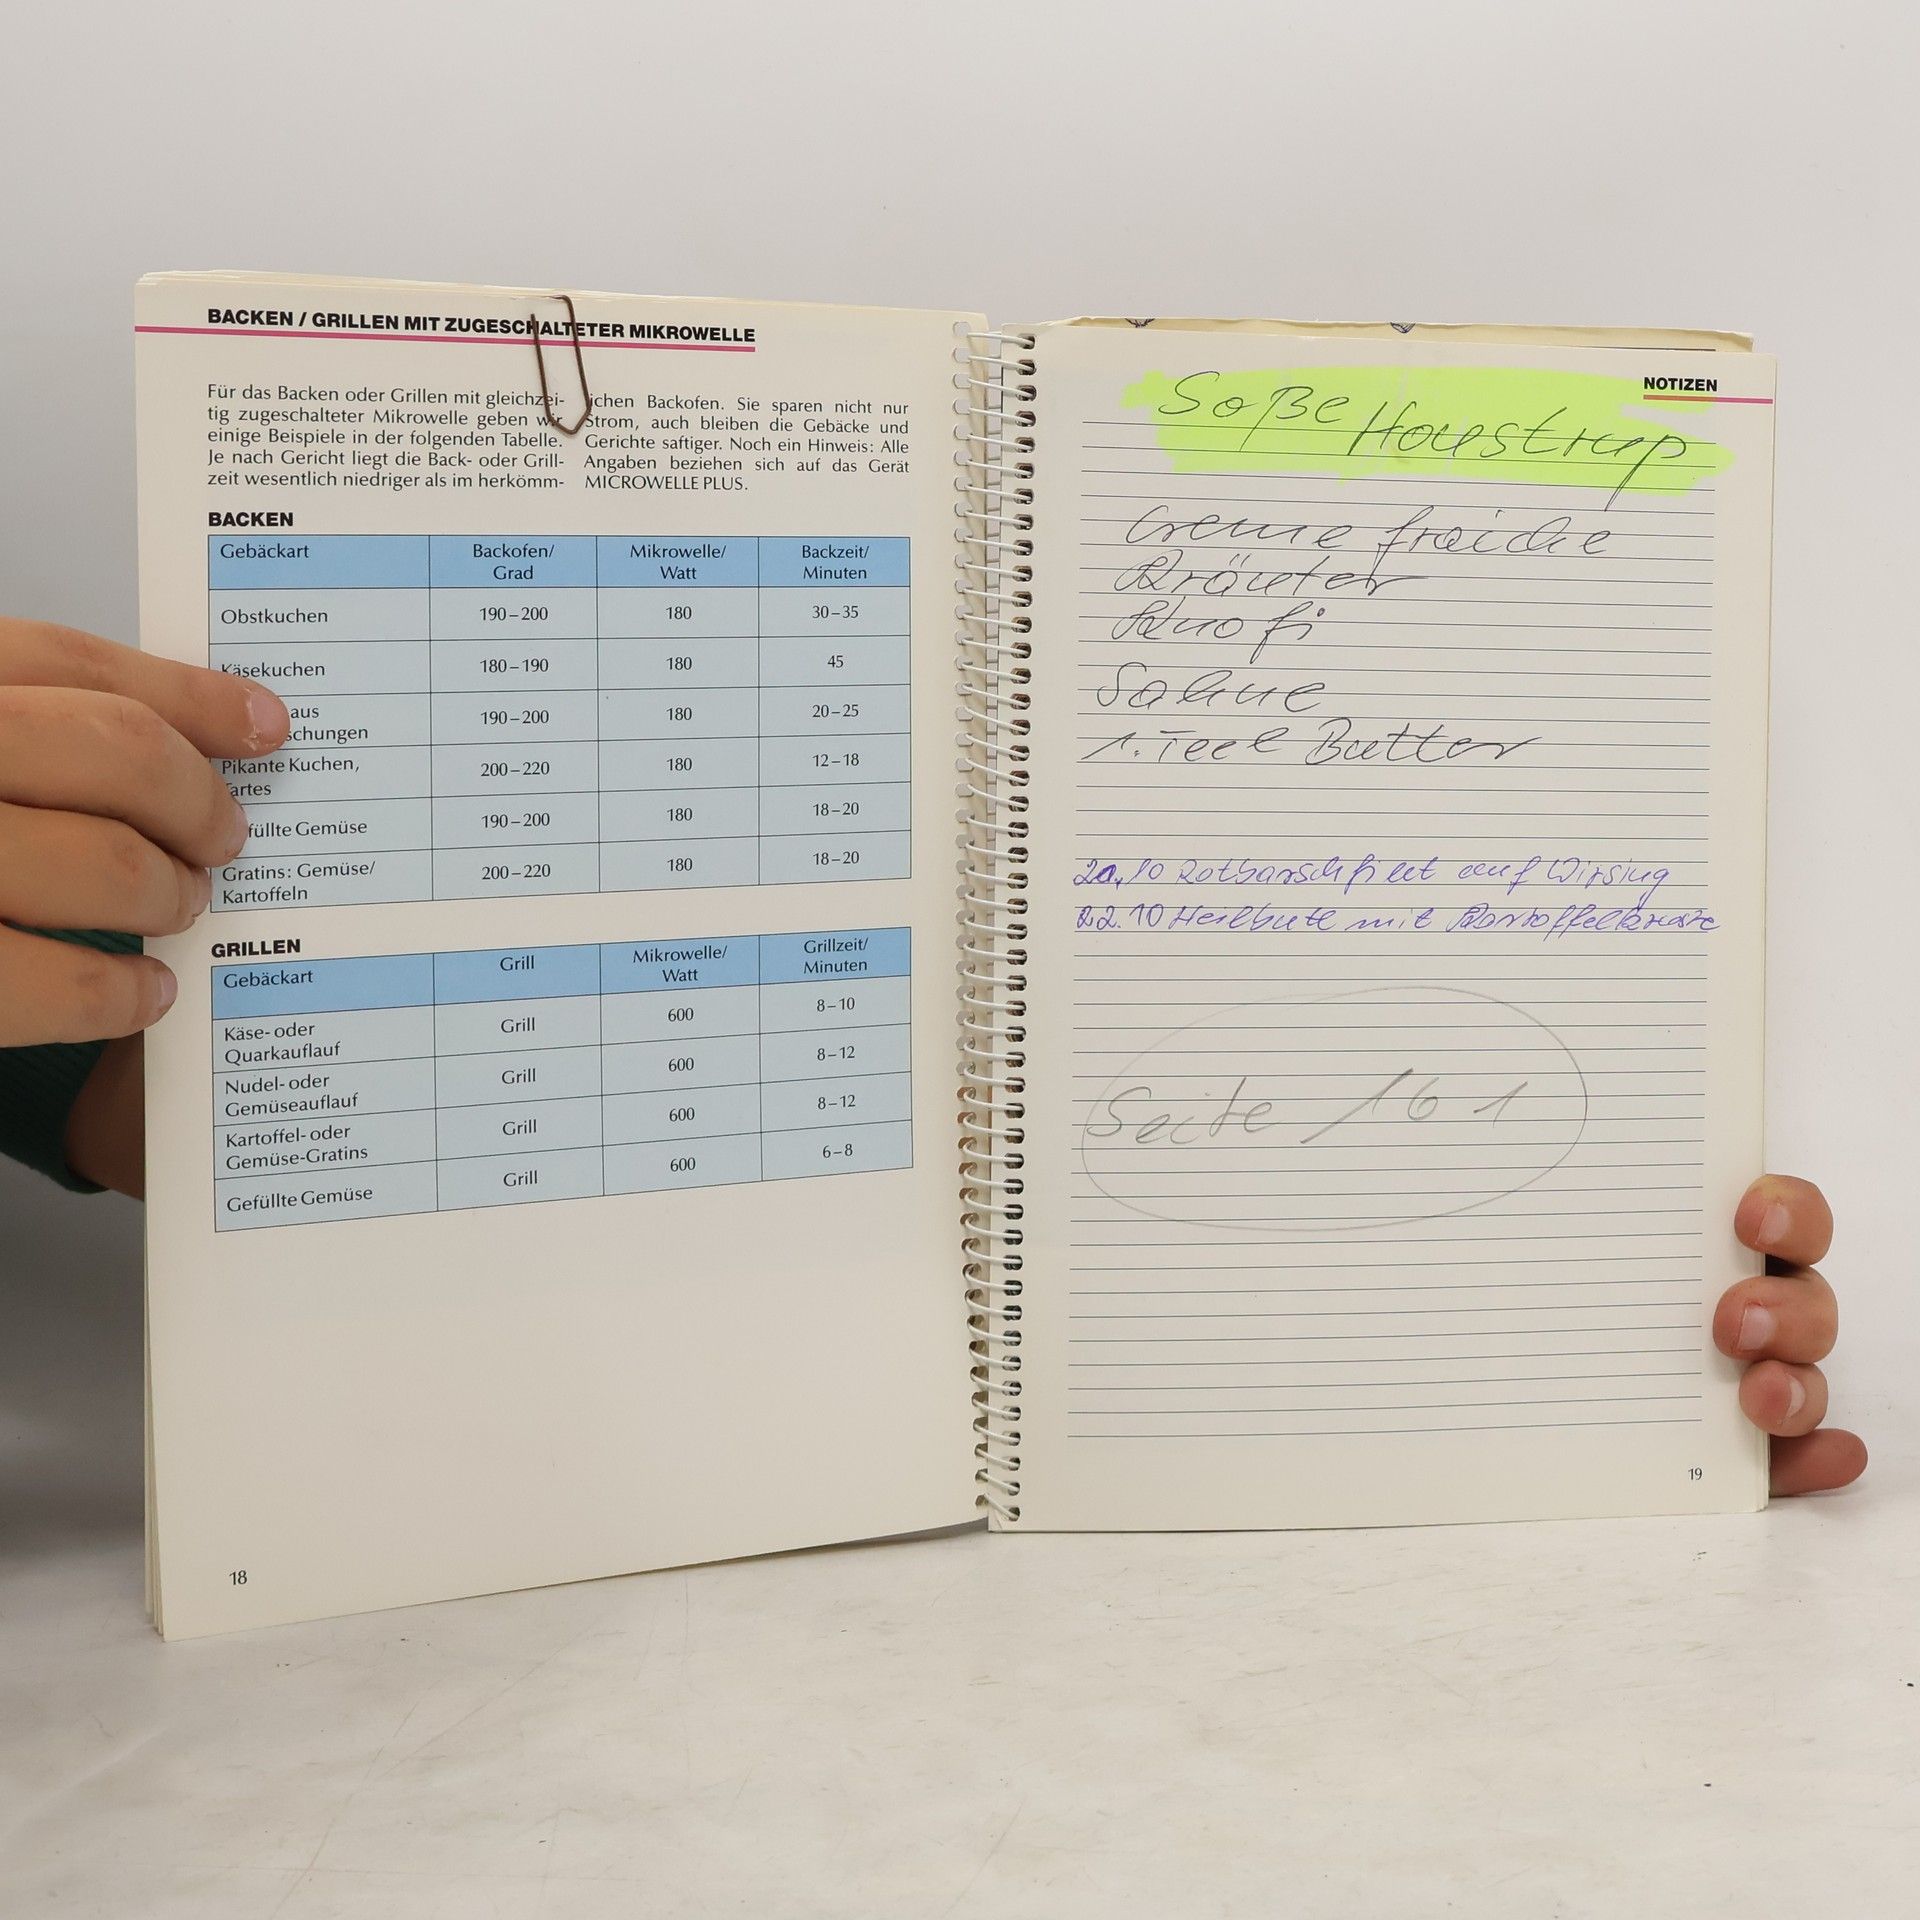 BACKEN / GRILLEN MIT ZUGESCHALTETER MIKROWELLE
Für das Backen oder Grillen mit gleichzei-
tig zugeschalteter Mikrowelle geben wir
einige Beispiele in der folgenden Tabelle.
Je nach Gericht liegt die Back- oder Grill-
zeit wesentlich niedriger als im herkömm-
ichen Backofen. Sie sparen nicht nur
Strom, auch bleiben die Gebäcke und
Gerichte saftiger. Noch ein Hinweis: Alle
Angaben beziehen sich auf das Gerät
MICROWELLE PLUS.
BACKEN
Gebäckart Backofen/ Mikrowelle/ Backzeit/
Grad Watt Minuten
Obstkuchen 190–200 180 30–35
Käsekuchen 180–190 180 45
aus
schungen 190–200 180 20–25
Pikante Kuchen,
Tartes 200–220 180 12–18
füllte Gemüse 190–200 180 18–20
Gratins: Gemüse/
Kartoffeln 200–220 180 18–20
GRILLEN
Gebäckart Grill Mikrowelle/ Grillzeit/
Watt Minuten
Käse- oder
Quarkauflauf Grill 600 8–10
Nudel- oder
Gemüseauflauf Grill 600 8–12
Kartoffel- oder
Gemüse-Gratins Grill 600 8–12
Gefüllte Gemüse Grill 600 6–8
18
NOTIZEN
Soße
Creme fraiche
Kräuter
Knofi
Sahne
1. Teel Butter
20.10 Rotbarschfilet auf Wirsing
22.10 Heilbutt mit Kartoffelkruste
Seite 161
19